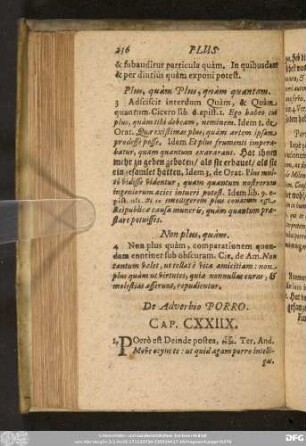 236 PLUS
& subauditur particula quàm. In quibusdam
& per diutius quàm exponi potest.
Plus, quàm Plus, quàm quantam.
3 Adsciscit interdum Quàm, & Quàm
quantum. Cicero lib. 6. epist. 1. Ego habeo cui
plus, quàm tibi debeam, neminem. Idem 1. de
Orat. Qua existimas plus, quàm artem ipsam
prodesse posse. Idem Et plus frumenti impera-
batur, quàm quantum exararant. Hat ihnen
mehr zu geben geboten / als sie erbauet / als sie
ein gesamlet hatten. Idem 3. de Orat. Plus mul-
tò vidisse videntur, quàm quantum nostrorum
ingeniorum acies intueri potest. Idem lib. 9. e-
pist. plus conatum
Reipublicæ causa muneris, quàm quantum præ-
stare potuisset.
Non plus, quàm.
4 Non plus quàm, comparationem quan-
dam continet sub obscuram. Cic. de Am. Non
tantum valet, ut tollat è vita amicitiam: non
plus quàm ut virtutes, quia nonnullas curas, &
molestias afferunt, repudientur.
De Adverbio PORRO.
CAP. CXXIIX.
1. POrrò est Deinde postea, Ter. And.
ut quid agam porro intelli-
gas.